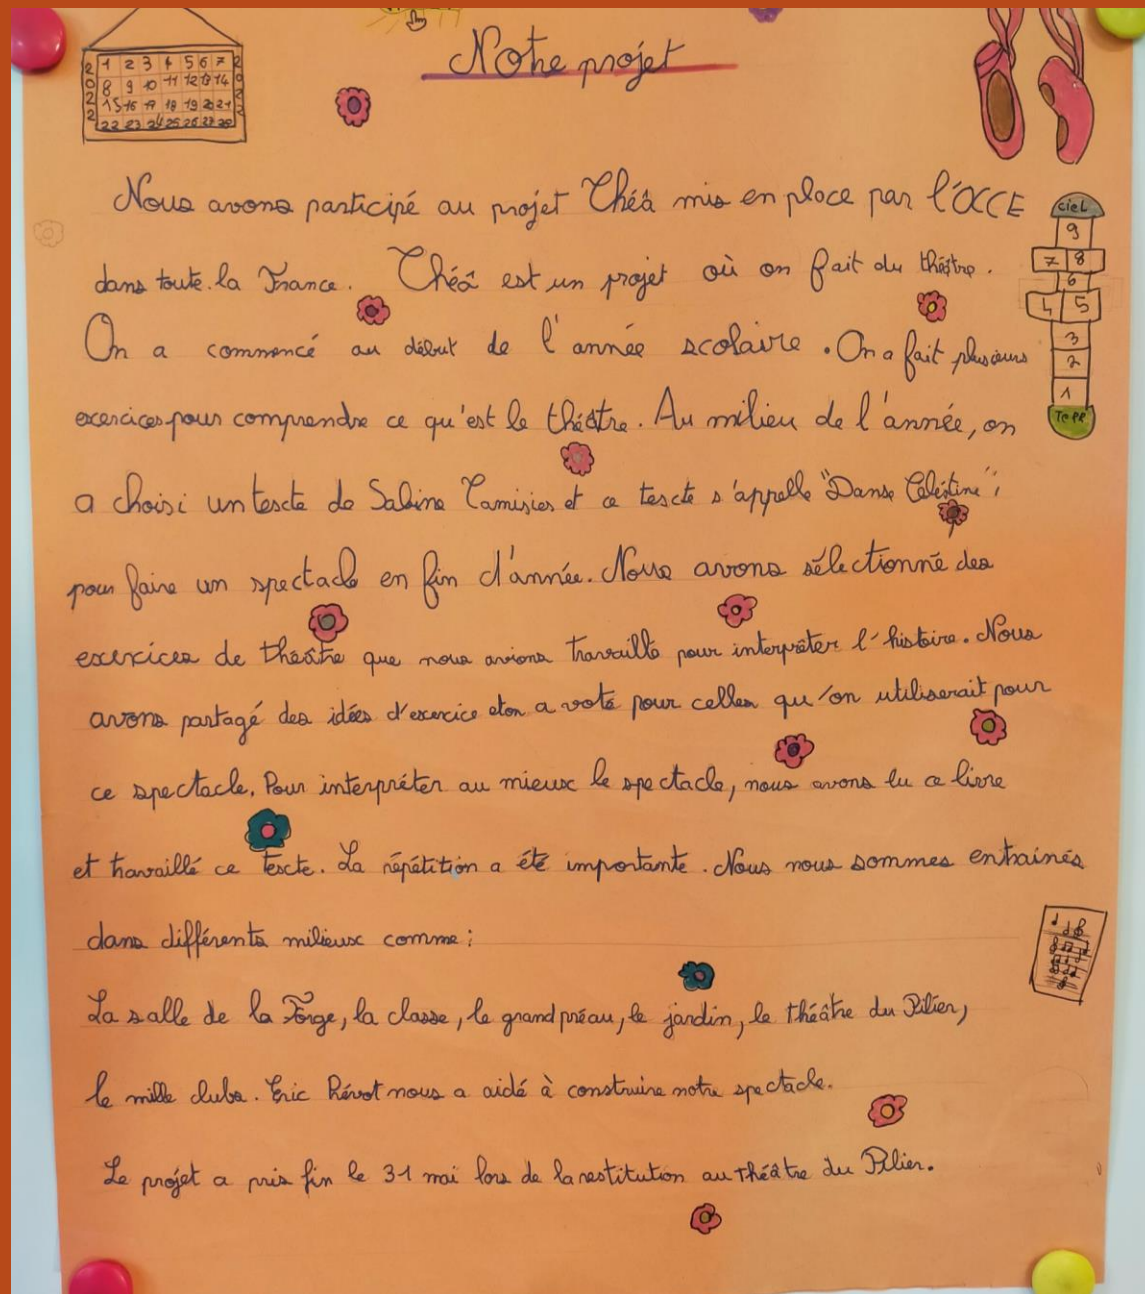 Notre projet
2022
1 2 3 4 5 6 7
8 9 10 11 12 13 14
15 16 17 18 19 20 21
22 23 24 25 26 27 28
2022
Nous avons participé au projet Théâ mis en place par l'OCCE
dans toute la France. Théâ est un projet où on fait du théâtre.
On a commencé au début de l'année scolaire. On a fait plusieurs
exercices pour comprendre ce qu'est le théâtre. Au milieu de l'année, on
a choisi un texte de Sabine Tamisier et ce texte s'appelle "Danse Célestine",
pour faire un spectacle en fin d'année. Nous avons sélectionné des
exercices de théâtre que nous avions travaillé pour interpréter l'histoire. Nous
avons partagé des idées d'exercice et on a voté pour celles qu'on utiliserait pour
ce spectacle. Pour interpréter au mieux le spectacle, nous avons lu ce livre
et travaillé ce texte. La répétition a été importante. Nous nous sommes entrainés
dans différents milieux comme :
La salle de la Forge, la classe, le grand préau, le jardin, le théâtre du Pilier,
le mille clubs. Eric Révot nous a aidé à construire notre spectacle.
Le projet a pris fin le 31 mai lors de la restitution au théâtre du Pilier.
ciel
9
7 8
6
4 5
3
2
1